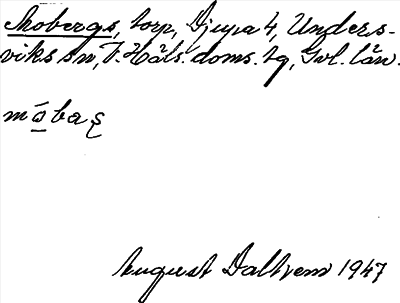 Mobergs, torp, Djupa 4, Unders-
viks sn, V. Häls. doms. tg, Gvl. län.
måbaʂ
August Daltrem 1947